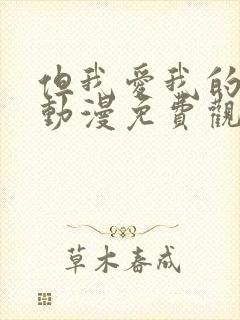 但我愛我的
動漫免費觀
草木春成